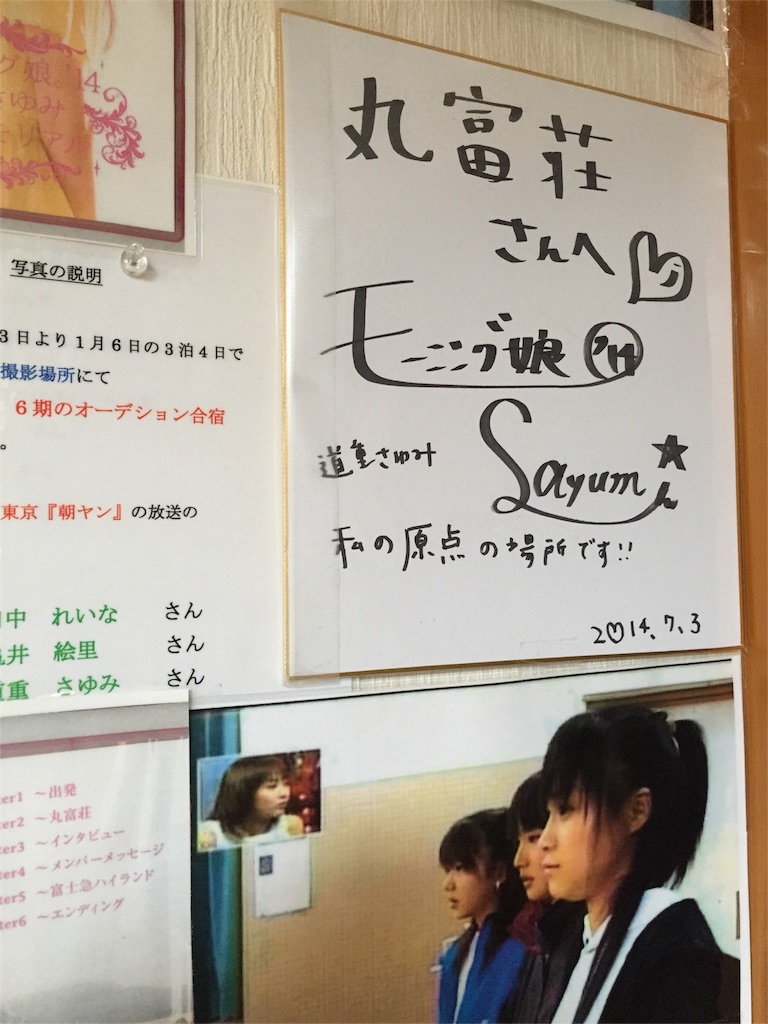 グ娘。'14
さゆみ
モリアル
写真の説明
3日より1月6日の3泊4日で
撮影場所にて
6期のオーデション合宿
。
東京『朝ヤン』の放送の
中 れいな さん
亀井 絵里 さん
道重 さゆみ さん
ter1 ～出発
ter2 ～丸富荘
ter3 ～インタビュー
ter4 ～メンバーメッセージ
ter5 ～富士急ハイランド
ter6 ～エンディング
丸富荘
さんへ
モーニング娘 '14
Sayumi
道重さゆみ
私の原点の場所です!!
2014.7.3